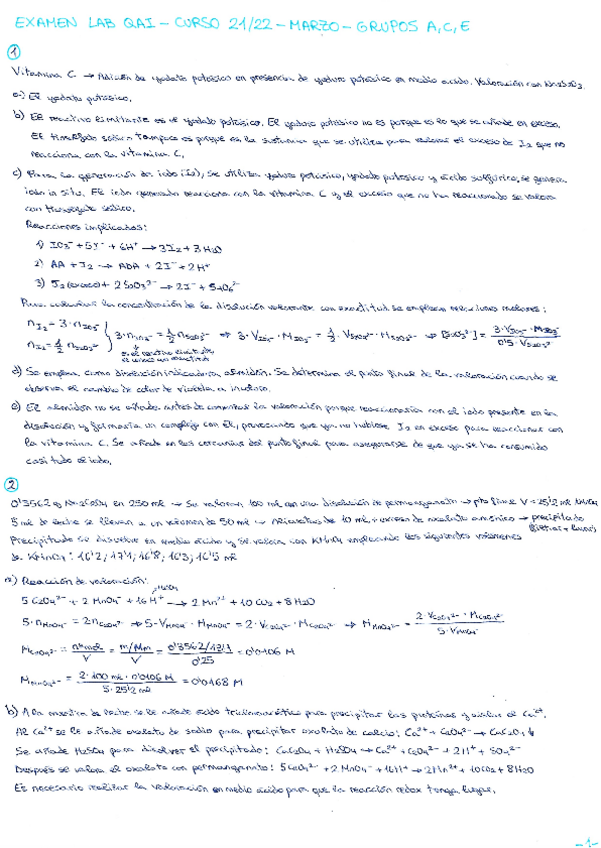 EXAMEN LAB QAI - CURSO 21/22 - MARZO - GRUPOS A, C, E
1
Vitamina C → Adición de yodato potásico en presencia de yoduro potásico en medio ácido. Valoración con Na2S2O3.
a) El yodato potásico.
b) El reactivo limitante es el yodato potásico. El yoduro potásico no es porque es lo que se añade en exceso.
El tiosulfato sódico tampoco es porque es la sustancia que se utiliza para valorar el exceso de I2 que no
reacciona con la vitamina C.
c) Para la generación de iodo (I2), se utilizan yoduro potásico, yodato potásico y ácido sulfúrico, se genera
iodo in situ. El iodo generado reacciona con la vitamina C y el exceso que no ha reaccionado se valora
con tiosulfato sódico.
Reacciones implicadas:
1) IO3⁻ + 5I⁻ + 6H⁺ → 3I2 + 3H2O
2) AA + I2 → ADA + 2I⁻ + 2H⁺
3) I2 (exceso) + 2S2O3²⁻ → 2I⁻ + S4O6²⁻
Para calcular la concentración de la disolución valorante con exactitud se emplean relaciones molares:
d) Se emplea como disolución indicadora almidón. Se determina el punto final de la valoración cuando se
observa el cambio de color de violeta a incoloro.
e) El almidón no se añade antes de comenzar la valoración porque reaccionaría con el iodo presente en la
disolución y formaría un complejo con él, provocando que ya no hubiese I2 en exceso para reaccionar con
la vitamina C. Se añade en las cercanías del punto final para asegurarse de que ya se ha consumido
casi todo el iodo.
2
0'3562 g Na2C2O4 en 250 ml → Se valoran 100 ml con una disolución de permanganato → pto final V = 25'2 ml KMnO4
5 ml de leche se llevan a un volumen de 50 ml → Alícuotas de 10 ml + exceso de oxalato amónico → precipitado
Precipitado se disuelve en medio ácido y se valora con KMnO4 empleando los siguientes volúmenes
de KMnO4: 16'2, 17'1, 16'8, 16'3, 16'5 ml
a) Reacción de valoración:
5 C2O4²⁻ + 2 MnO4⁻ + 16 H⁺ → 2 Mn²⁺ + 10 CO2 + 8 H2O
b) A la muestra de leche se le añade ácido tricloroacético para precipitar las proteínas y aislar el Ca²⁺.
Al Ca²⁺ se le añade oxalato de sodio para precipitar oxalato de calcio: Ca²⁺ + C2O4²⁻ → CaC2O4↓
Se añade H2SO4 para disolver el precipitado: CaC2O4 + H2SO4 → Ca²⁺ + C2O4²⁻ + 2H⁺ + SO4²⁻
Después se valora el oxalato con permanganato: 5C2O4²⁻ + 2MnO4⁻ + 16H⁺ → 2Mn²⁺ + 10CO2 + 8H2O
Es necesario realizar la valoración en medio ácido para que la reacción redox tenga lugar.
-1-